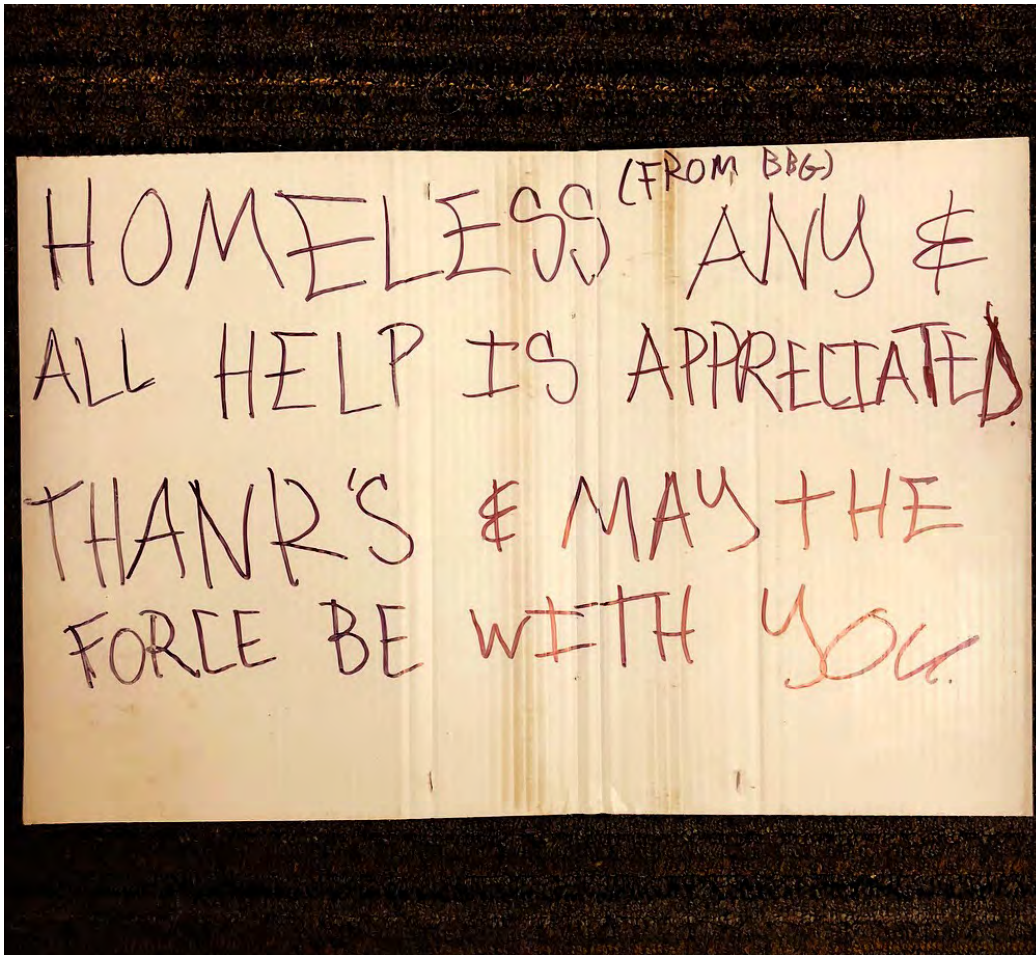 HOMELESS (FROM BBG) ANY &
ALL HELP IS APPRECIATED.
THANK'S & MAY THE
FORCE BE WITH YOU.